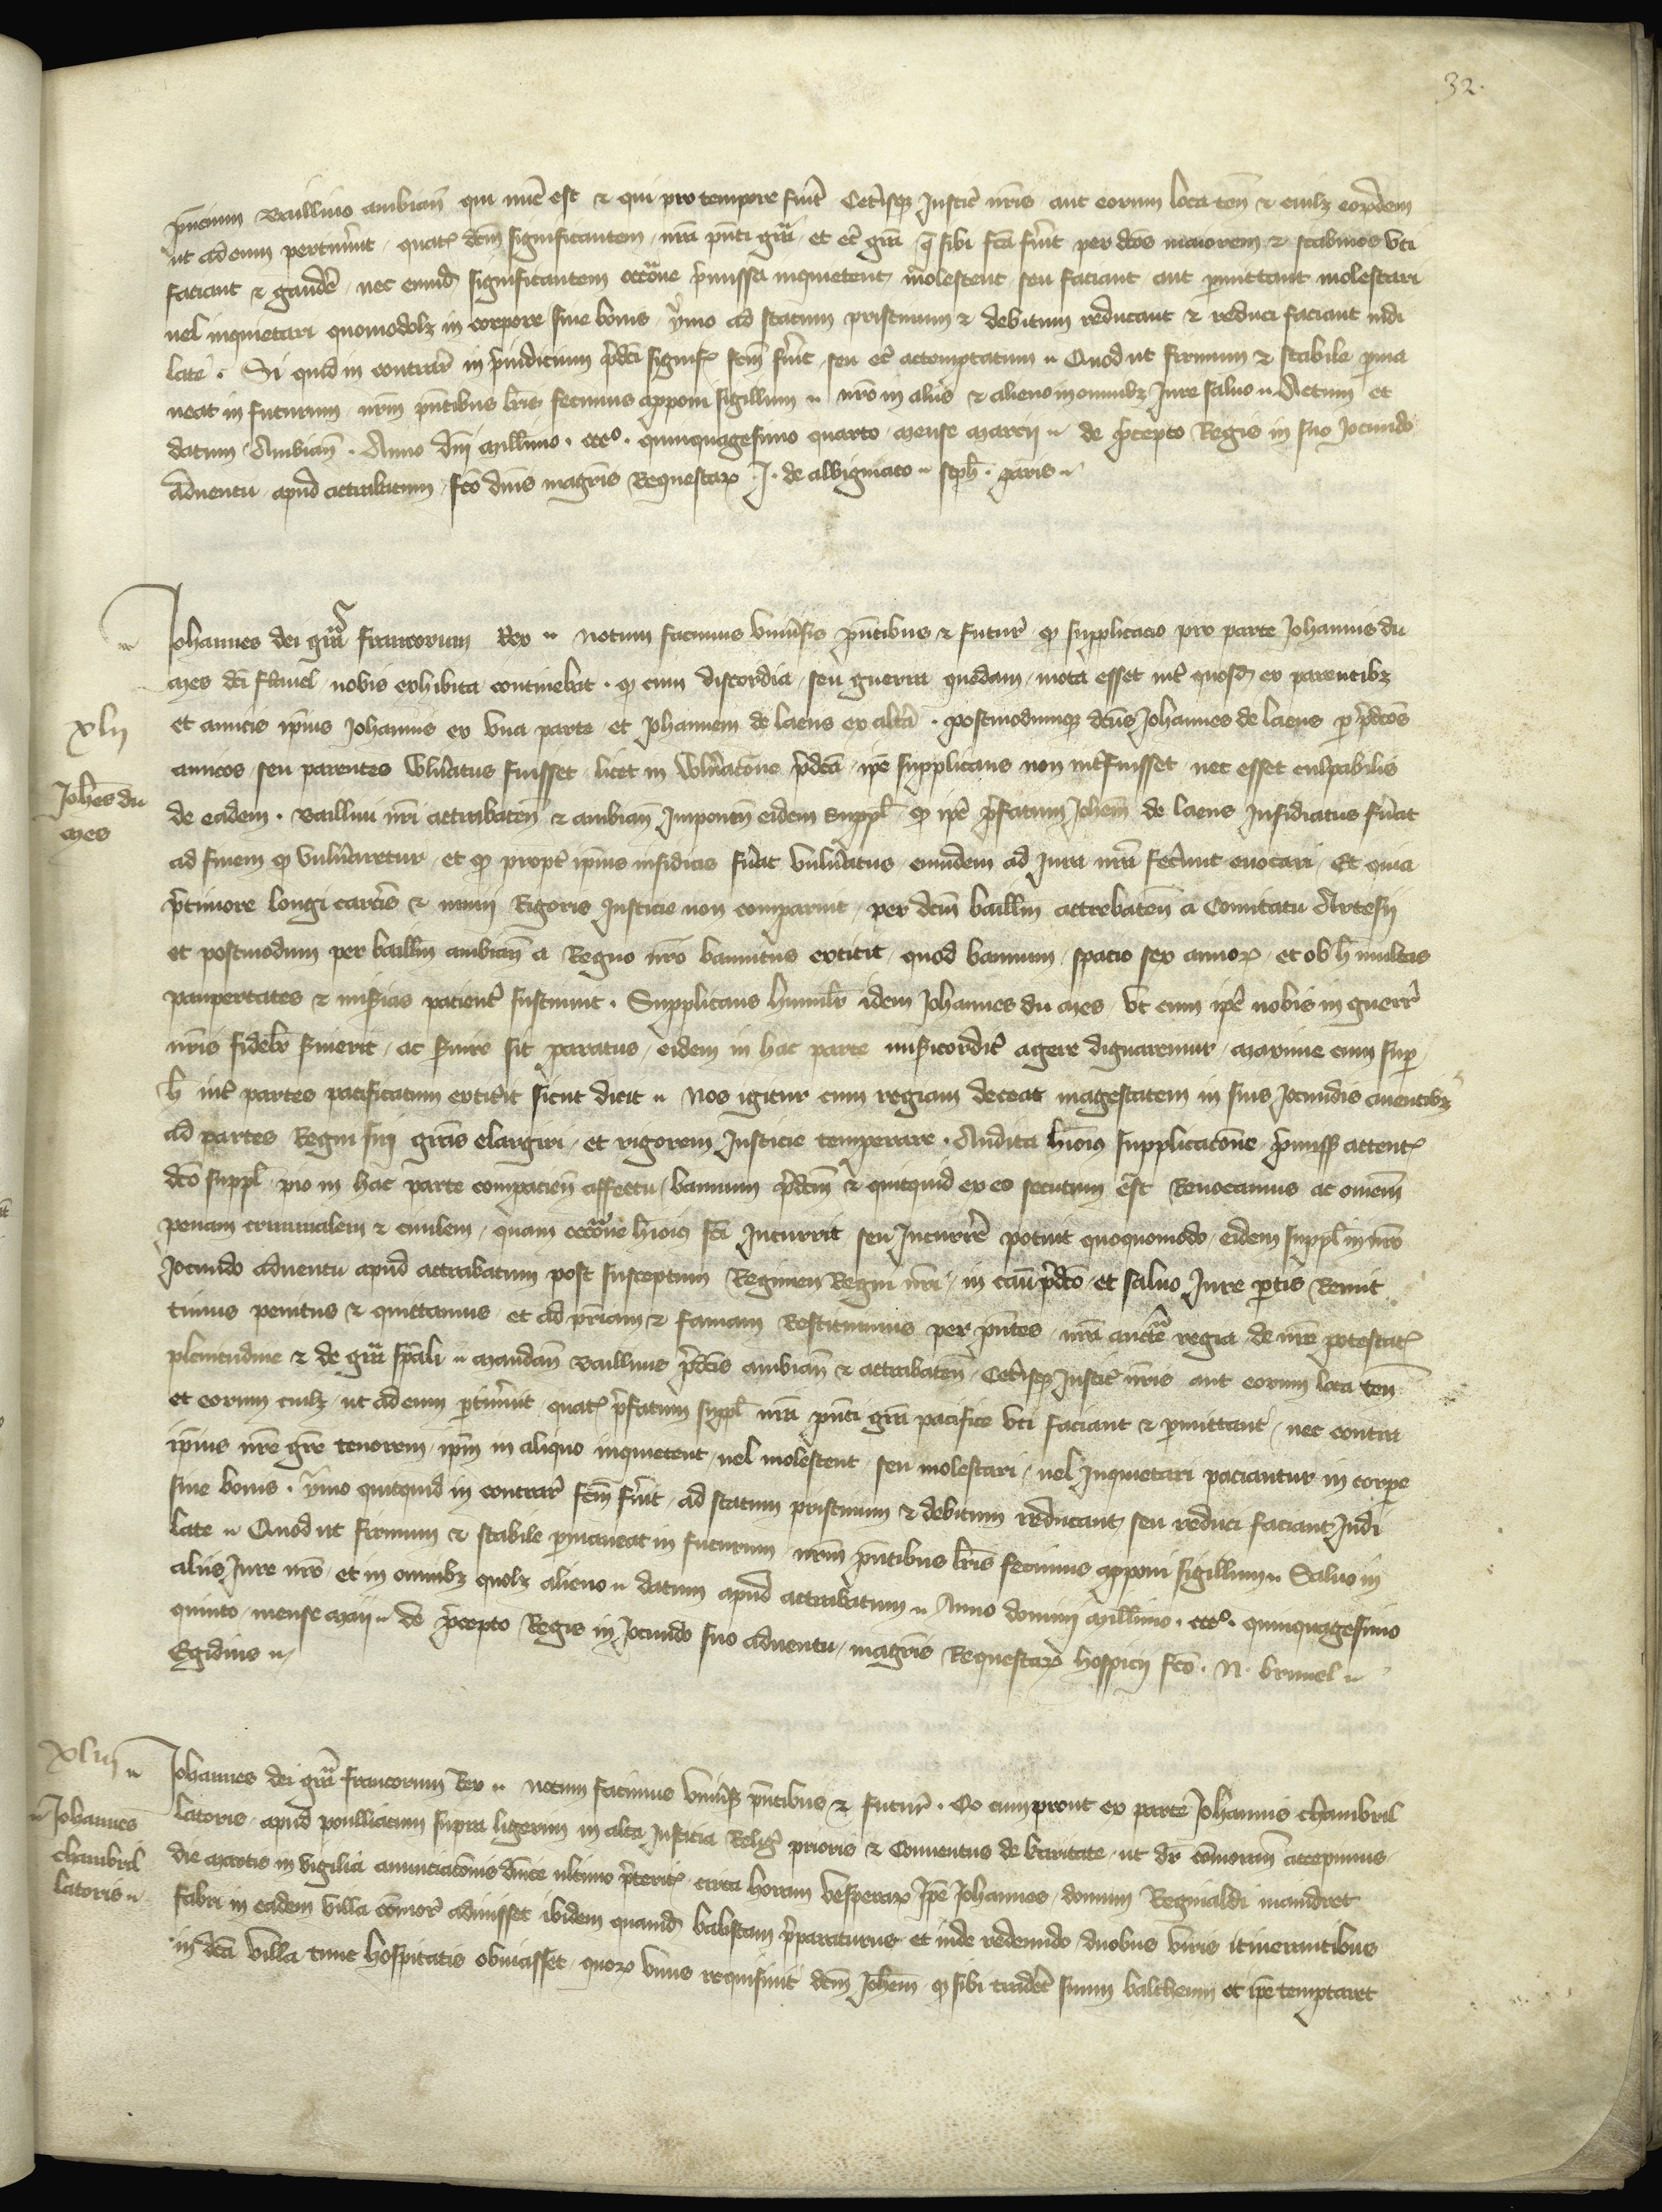 32.
pncium Baillivo ambianen qui nunc est & qui pro tempore fuerit Ceterisque Justic nris aut eorum loca ten & cuilz eorumdem
ut ad eum pertinuerit quatz dcm significantem nra pnti gra et ec gra q sibi fca fuit per dcos maiorem & scabinos uti
faciant & gaudere nec eumd significantem occone premissa inquietent molestent seu faciant aut pmittant molestari
vel inquietari quomodolz in corpore sive bonis ymo ad statum pristinum & debitum reducant & reduci faciant indi
late. Si quid in contrar in preiudicium pdci signif fcm fuit seu ec attemptatum Quod ut firmum & stabile pma
neat in futurum nrm pntibus lris fecimus apponi sigillum nro in aliis & alieno in omnibz Jure salvo Actum et
datum Ambian. Anno dni millimo. ccco. quinquagesimo quarto mense marcii de pcepto Regis in suo Jocundo
adventu apud attrabatum fco dnis magris Requestar J. de albigniaco seph. paris

Johannes dei gra francorum Rex notum facimus universis pntibus & futur q supplicacio pro parte Johannis du
mes dci flamel nobis exhibita continebat. q cum discordia seu guerra quedam mota esset int quosd ex parentibz
et amicis ipius Johannis ex una parte et Johannem de laens ex altera. postmodumque dcus Johannes de laens p pdcos
amicos seu parentes vulneratus fuisset licet in vulneracone pdca ipe supplicans non intfuisset nec esset culpabilis
de eadem. Baillivi nri attrabaten & ambian Imponen eidem suppl q ipe pfatum Johem de laens Insidiatus fuerat
ad finem q vulneraretur et q propt ipius insidias fuerat vulneratus eumdem ad Jura nra fecerunt evocari Et quia
p timore longi carceris & nimii Rigoris Justicie non comparuit per dcm baillm attrebaten a Comitatu Artesii
et postmodum per baillm ambian a Regno nro bannitus extitit quod bannum spacio sex annor et ob h multas
paupertates & miserias pacienter sustinuit. Supplicans humilr idem Johannes du mes ut cum ipe nobis in guerr
nris fidelr servierit ac servire sit paratus eidem in hac parte misericordit agere dignaremur maxime cum sup
h int partes pacificatum extiterit sicut dicit Nos igitur cum regiam deceat magestatem in suis Jocundis aventibz
ad partes Regni sui gras elargiri et rigorem Justicie temperare. Audita huiois supplicacone premiss attentz
dco suppl pio in hac parte compacien affectu bannum pdcm & quitquid ex eo secutum est Revocamus ac omem
penam criminalem & civilem quam occone huiois fci Incurrit seu Incurrere potuit quoquomodo eidem suppl in nro
Jocundo adventu apud attrabatum post susceptum Regimen Regni nri in casu pdco et salvo Jure ptis Remit
timus penitus & quittamus et ad priam & famam Restituimus per pntes nra aucte regia de nre potestatz
plenitudine & de gra spali mandan Baillivis pdcis ambian & attrabaten Ceterisque Justic nris aut eorum loca ten
et eorum cuilz ut ad eum ptinuerit quatz pfatum suppl nra pnti gra pacifice uti faciant & pmittant nec contra
ipius nre gre tenorem ipm in aliquo inquietent vel molestent seu molestari vel Inquietari paciantur in corpe
sive bonis. ymo quitquid in contrar fcm fuerit ad statum pristinum & debitum reducant seu reduci faciant Indi
late Quod ut firmum & stabile pmaneat in futurum nrm pntibus lris fecimus apponi sigillum Salvo in
aliis Jure nro et in omnibz quolz alieno datum apud attrabatum Anno domini millimo. ccco. quinquagesimo
quinto mense maii de pcepto Regis in Jocundo suo adventu magris Requestar hospicii fco. N. brunel
Egidius

xlii
Johes du
mes

xliii
Johannes dei gra francorum Rex notum facimus univsis pntibus & futur. Co cum prout ex parte Johannis chambril
latoris apud poulliacum supra ligerim in alta Justicia Religi prioris & Conventus de karitate ut dr comoram accepimus
die martis in vigilia annuciacois dnice ultimo preteritz circa horam vesperar Ipe Johannes domum Reginaldi maindret
fabri in eadem villa comor adivisset ibidem quamd balistam pparaturus et inde redeundo duobus viris itinerantibus
in dca villa tunc hospitatis obviasset quor unus requisivit dcm Johem q sibi traderet suum baltheum et ipe temptaret

Johannes
chambril
latoris